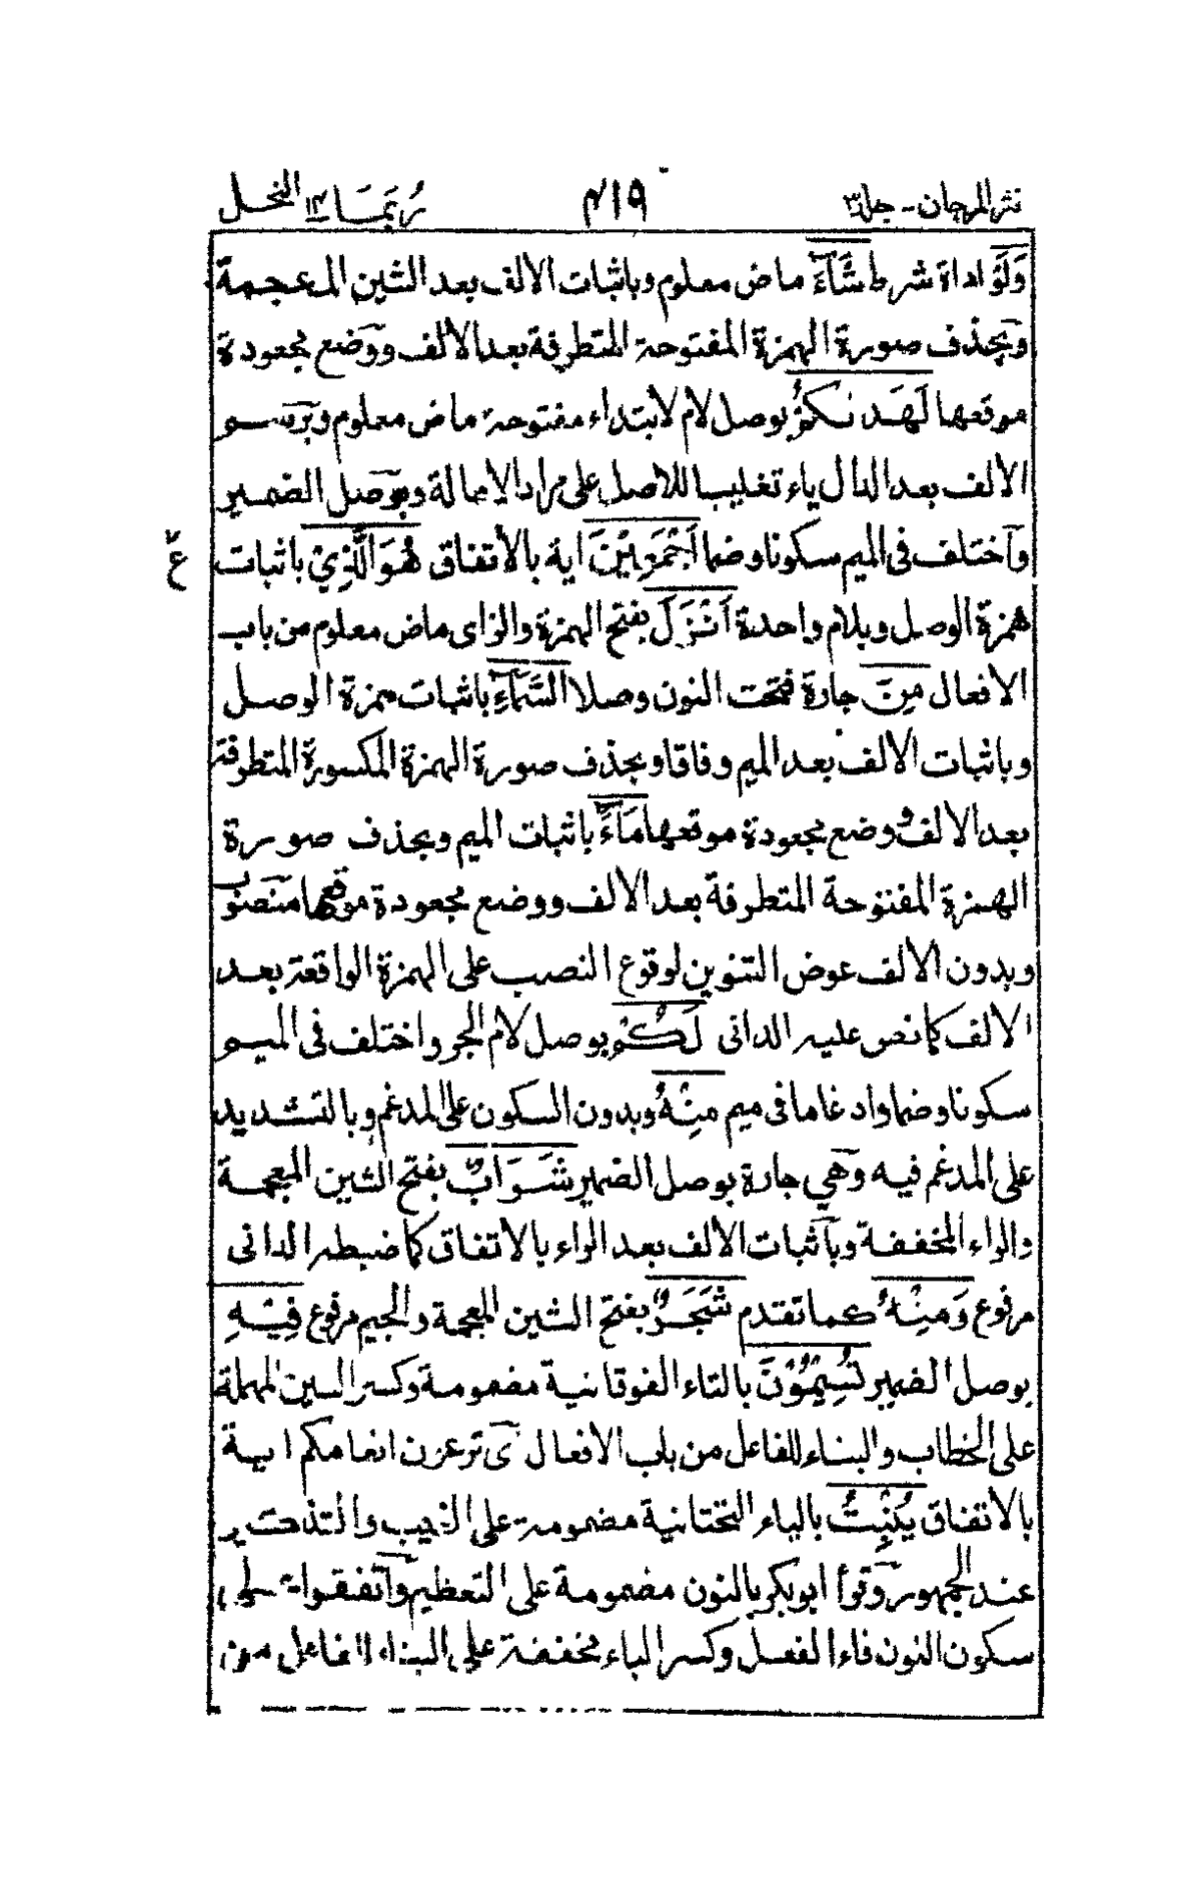 نثر المرجان - جلد ٣ ٤١٩ رُبَمَا ١٤ النحل
وَلَوْ اداة شرط شَآءَ ماض معلوم وباثبات الالف بعد الشين المعجمة
وبحذف صورة الهمزة المفتوحة المتطرفة بعد الالف ووضع مجعودة
موقعها لَهَدٰىكُمْ بوصل لام لابتداء مفتوحة ماض معلوم وبرسم
الالف بعد الدال ياء تغليبا للاصل على مراد الامالة وبوصل الضمير
واختلف فى الميم سكونا وضما اَجْمَعِيْنَ اية بالاتفاق هُوَ الَّذِيْ باثبات
ع
همزة الوصل وبلام واحدة اَنْزَلَ بفتح الهمزة والزاى ماض معلوم من باب
الافعال مِنَ جارة فتحت النون وصلا السَّمَآءِ باثبات همزة الوصل
وباثبات الالف بعد الميم وفاقا وبحذف صورة الهمزة المكسورة المتطرفة
بعد الالف ووضع مجعودة موقعها مَآءً باثبات الميم وبحذف صورة
الهمزة المفتوحة المتطرفة بعد الالف ووضع مجعودة موقعها منصوب
وبدون الالف عوض التنوين لوقوع النصب على الهمزة الواقعة بعد
الالف كما نص عليه الدانى لَكُمْ بوصل لام الجر واختلف فى الميم
سكونا وضما وادغاما فى ميم مِنْهُ وبدون السكون على المدغم وبالتشديد
على المدغم فيه وهي جارة بوصل الضمير شَرَابٌ بفتح الشين المعجمة
والراء المخففة وباثبات الالف بعد الراء بالاتفاق كما ضبطه الدانى
مرفوع وَمِنْهُ كما تقدم شَجَرٌ بفتح الشين المعجمة والجيم مرفوع فِيْهِ
بوصل الضمير تُسِيْمُوْنَ بالتاء الفوقانية مضمومة وكسر السين المهملة
على الخطاب والبناء للفاعل من باب الافعال اى ترعون انعامكم اية
بالاتفاق يُنْبِتُ بالياء التحتانية مضمومة على الغيب والتذكير
عند الجمهور وقرأ ابوبكر بالنون مضمومة على التعظيم واتفقوا على
سكون النون فاء الفعل وكسر الباء مخففة على البناء للفاعل من